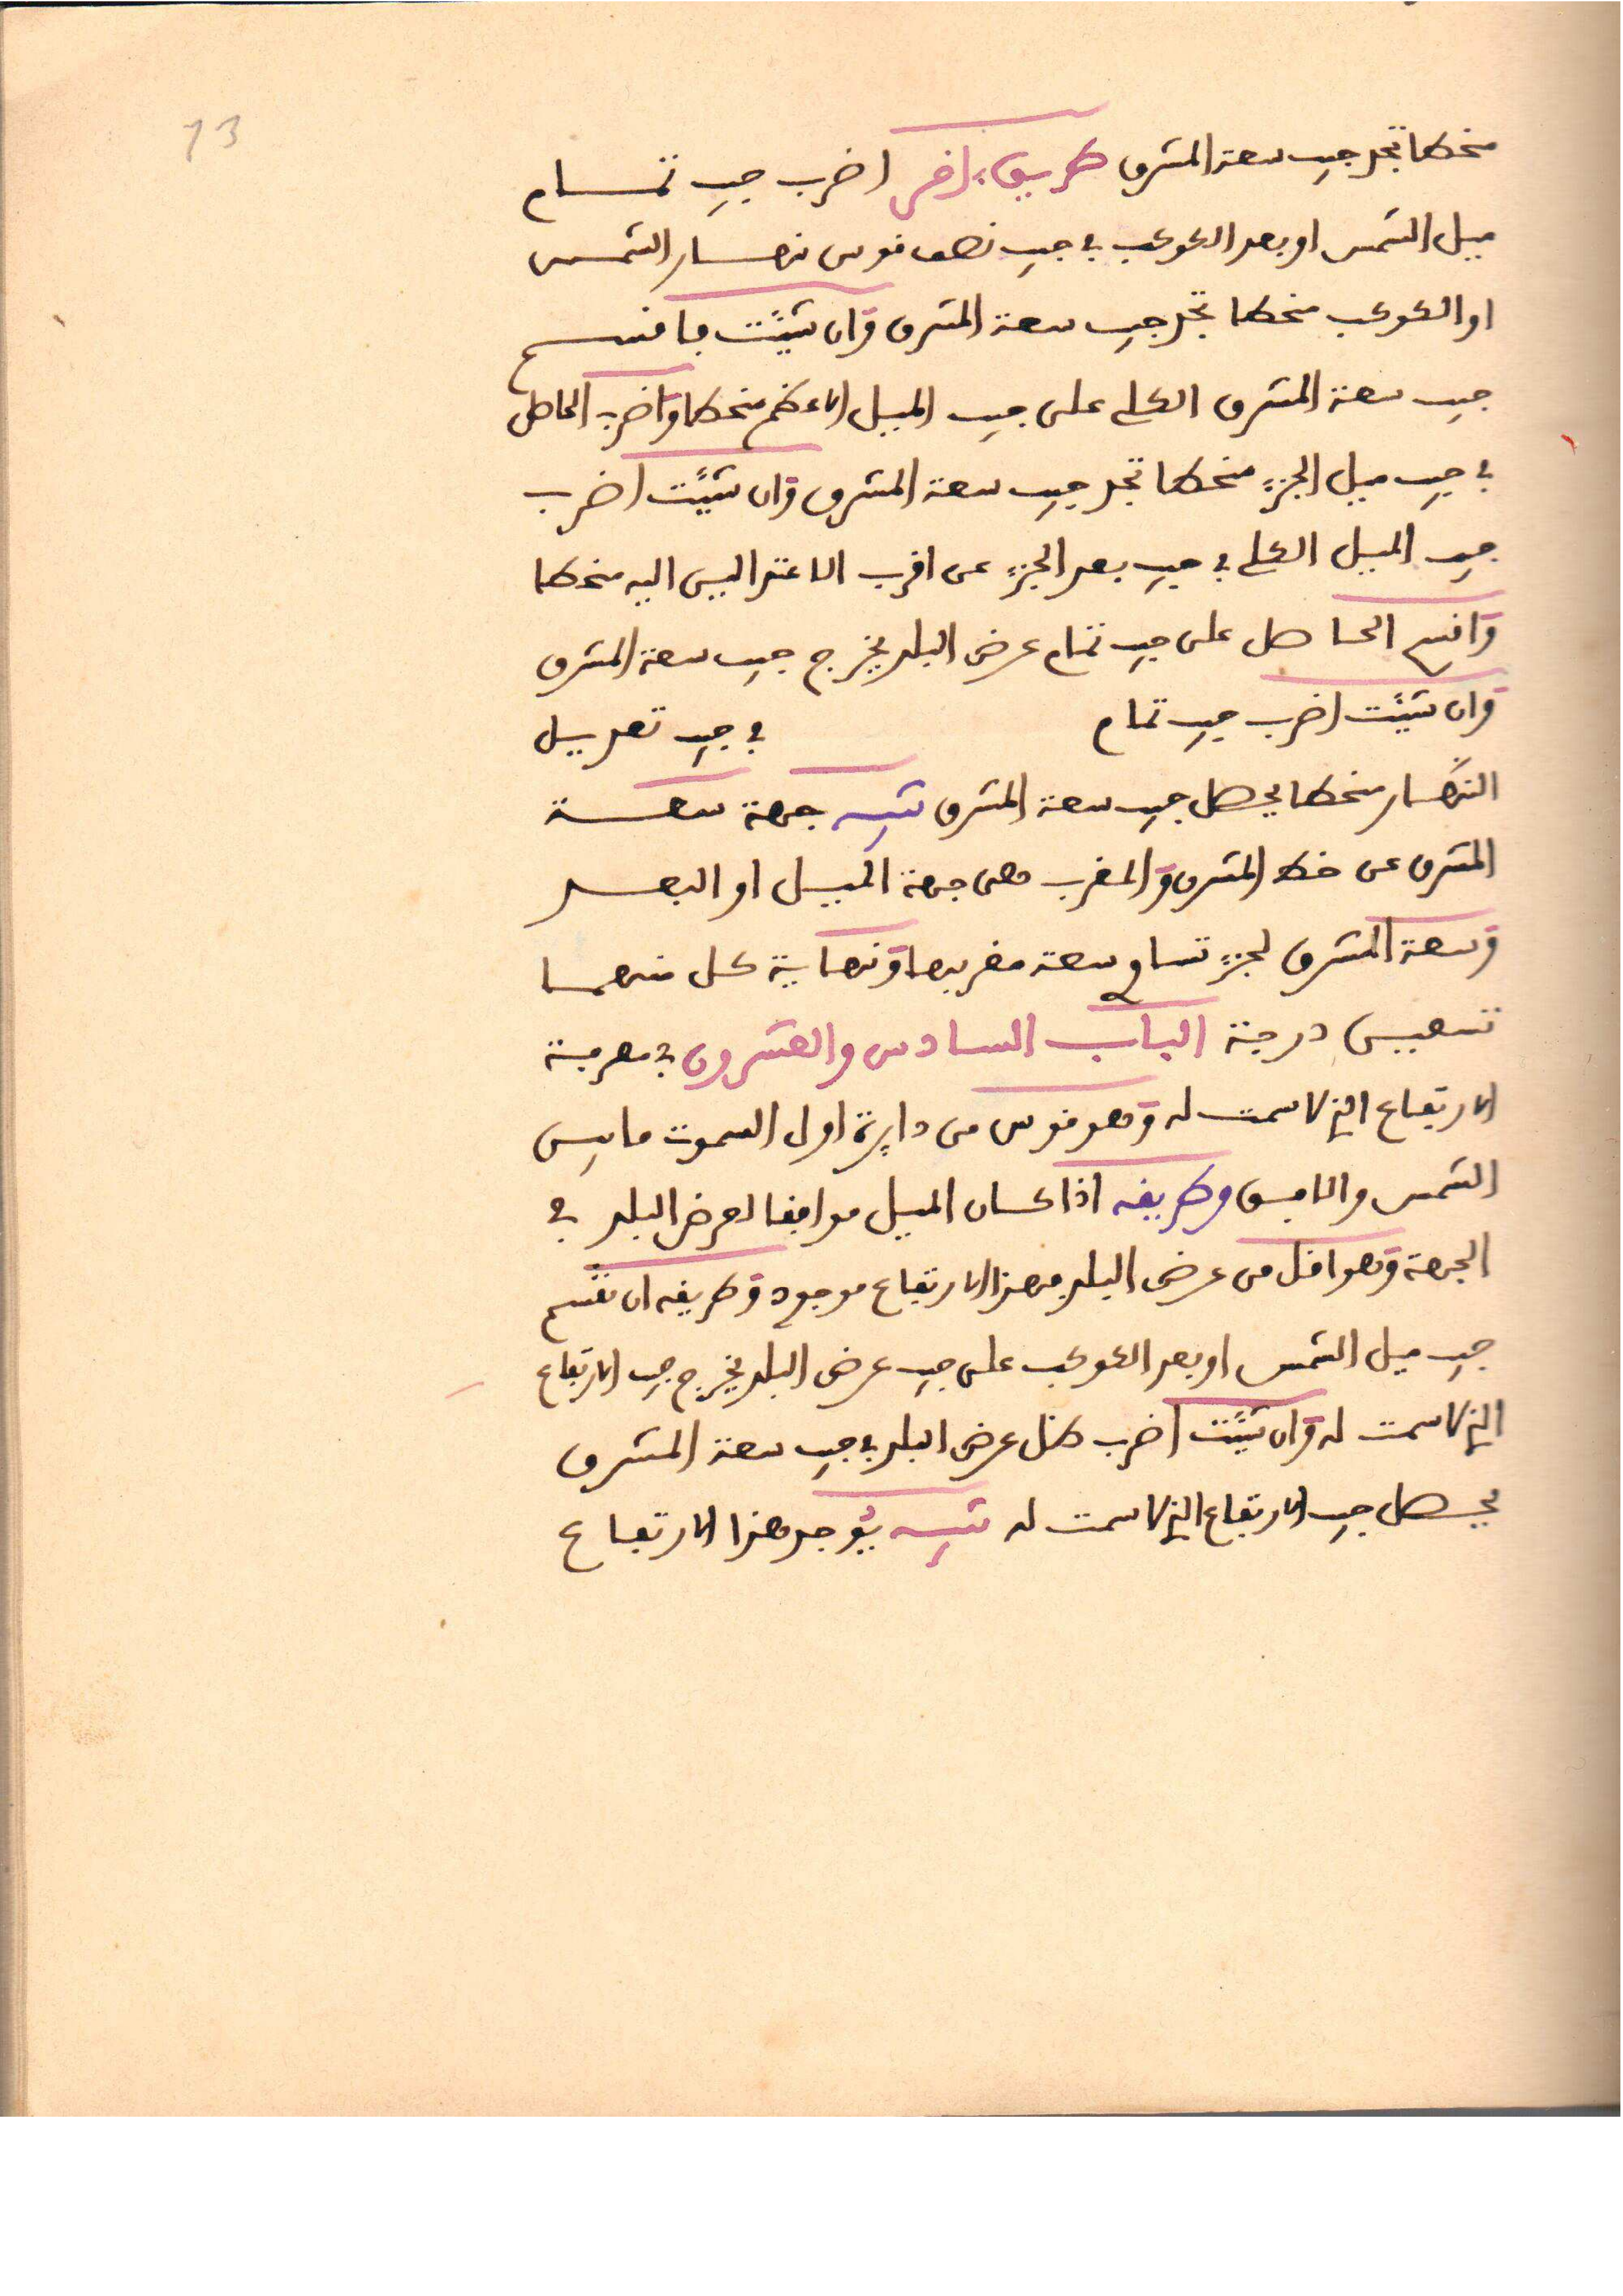 73
منحطا تجد جيب سعة المشرق طريق آخر اضرب جيب تمام
ميل الشمس او بعد الكوكب في جيب نصف قوس نهار الشمس
او الكوكب منحطا تجد جيب سعة المشرق وان شئت فاقسم
جيب سعة المشرق الكلي على جيب الميل الاعظم منحطا واضرب الحاصل
في جيب ميل الجزء منحطا تجد جيب سعة المشرق وان شئت اضرب
جيب الميل الكلي في جيب بعد الجزء عن اقرب الاعتدالين اليه منحطا
واقسم الحاصل على جيب تمام عرض البلد يخرج جيب سعة المشرق
وان شئت اضرب جيب تمام في جيب تعديل
النهار منحطا يحصل جيب سعة المشرق تنبيه جهة سعة
المشرق عن خط المشرق والمغرب هي جهة الميل او البعد
وسعة المشرق لجزء تساوي سعة مغربها ونهاية كل منهما
تسعين درجة الباب السادس والعشرون في معرفة
الارتفاع الذي لا سمت له وهو قوس من دايرة اول السموت ما بين
الشمس والافق وطريقه اذا كان الميل موافقا لعرض البلد في
الجهة وهو اقل من عرض البلد فهذا الارتفاع موجود وطريقه ان تقسم
جيب ميل الشمس او بعد الكوكب على جيب عرض البلد يخرج جيب الارتفاع
الذي لا سمت له وان شئت اضرب ظل عرض البلد في جيب سعة المشرق
يحصل جيب الارتفاع الذي لا سمت له تنبيه يوجد هذا الارتفاع